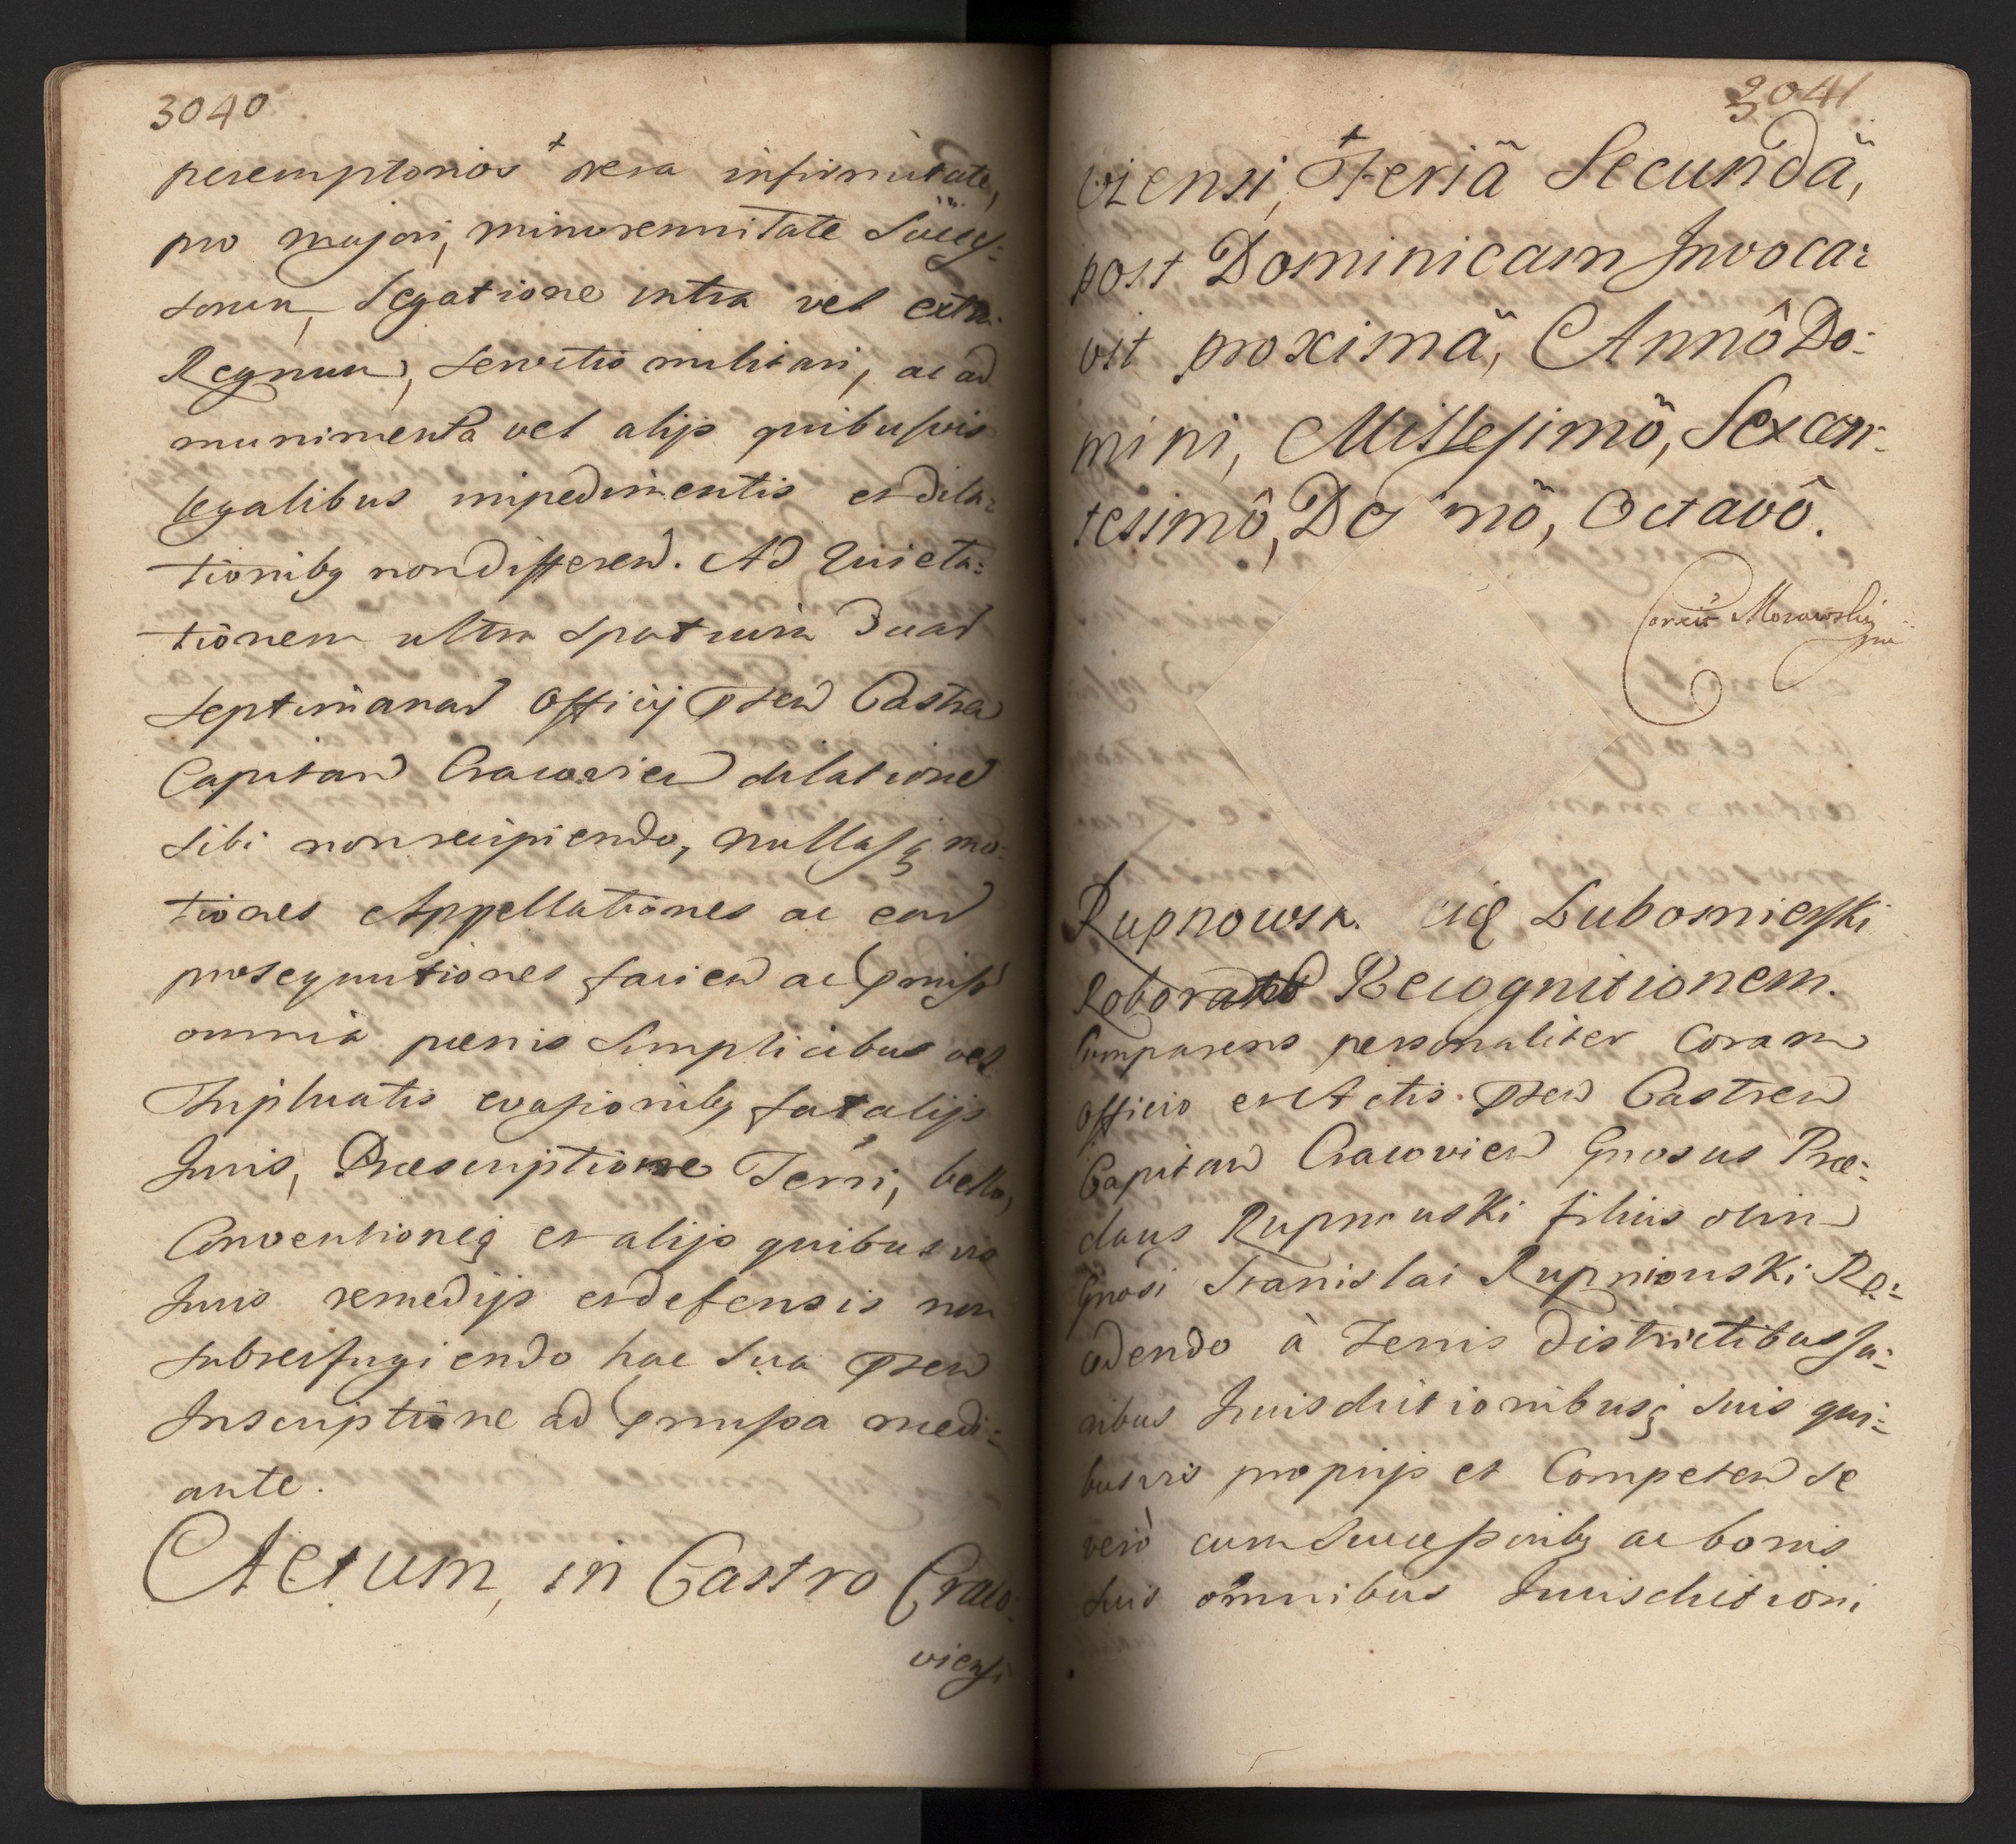 3040
peremptorios + vera infirmitate,
pro majori, minorennitate Succes-
sorum, Legatione intra vel extra
Regnum, servitio militari, ac ad
munimenta vel alijs quibusvis
legalibus impedimentis et dila:
tionibq non differen. Ad Quieta:
tionem ultra spatium duar
septimanar Officij pnten Castren
Capitan Cracovien dilatione
sibi non recipiendo, nullasq mo:
tiones Appellationes ac ear
prosequutiones facien ac pmissa
omnia poenis simplicibus vel
Triplicatis evasionibq fatalijs
Juris, Praescriptione Terri, bello,
Conventioneq et alijs quibusvis
Juris remedijs et defensis non
subterfugiendo hac sua pnten
Inscriptione ad pmissa medi:
ante.
Actum, in Castro Craco:
viensi
3041
viensi, Feriâ Secundâ,
post Dominicam Invoca:
vit proximâ, Annô Do:
mini, Millesimô, Sexcen:
tesimô, De mô, Octavô.
Morawsky
mp
Rupnowsk. Lubomierski
Roborat Recognitionem.
Comparens personaliter coram
officio et Actis pnten Castren
Capitan Cracovien Gnosus Prae:
claus Rupniowski filius olim
Gnosi Stanislai Rupniowski Re:
cedendo à Terris districtibus Ju:
ribus Jurisdictionibusq suis qui:
busvis proprijs et Competen se
verò cum Successoribq ac bonis
suis omnibus Jurisdictioni